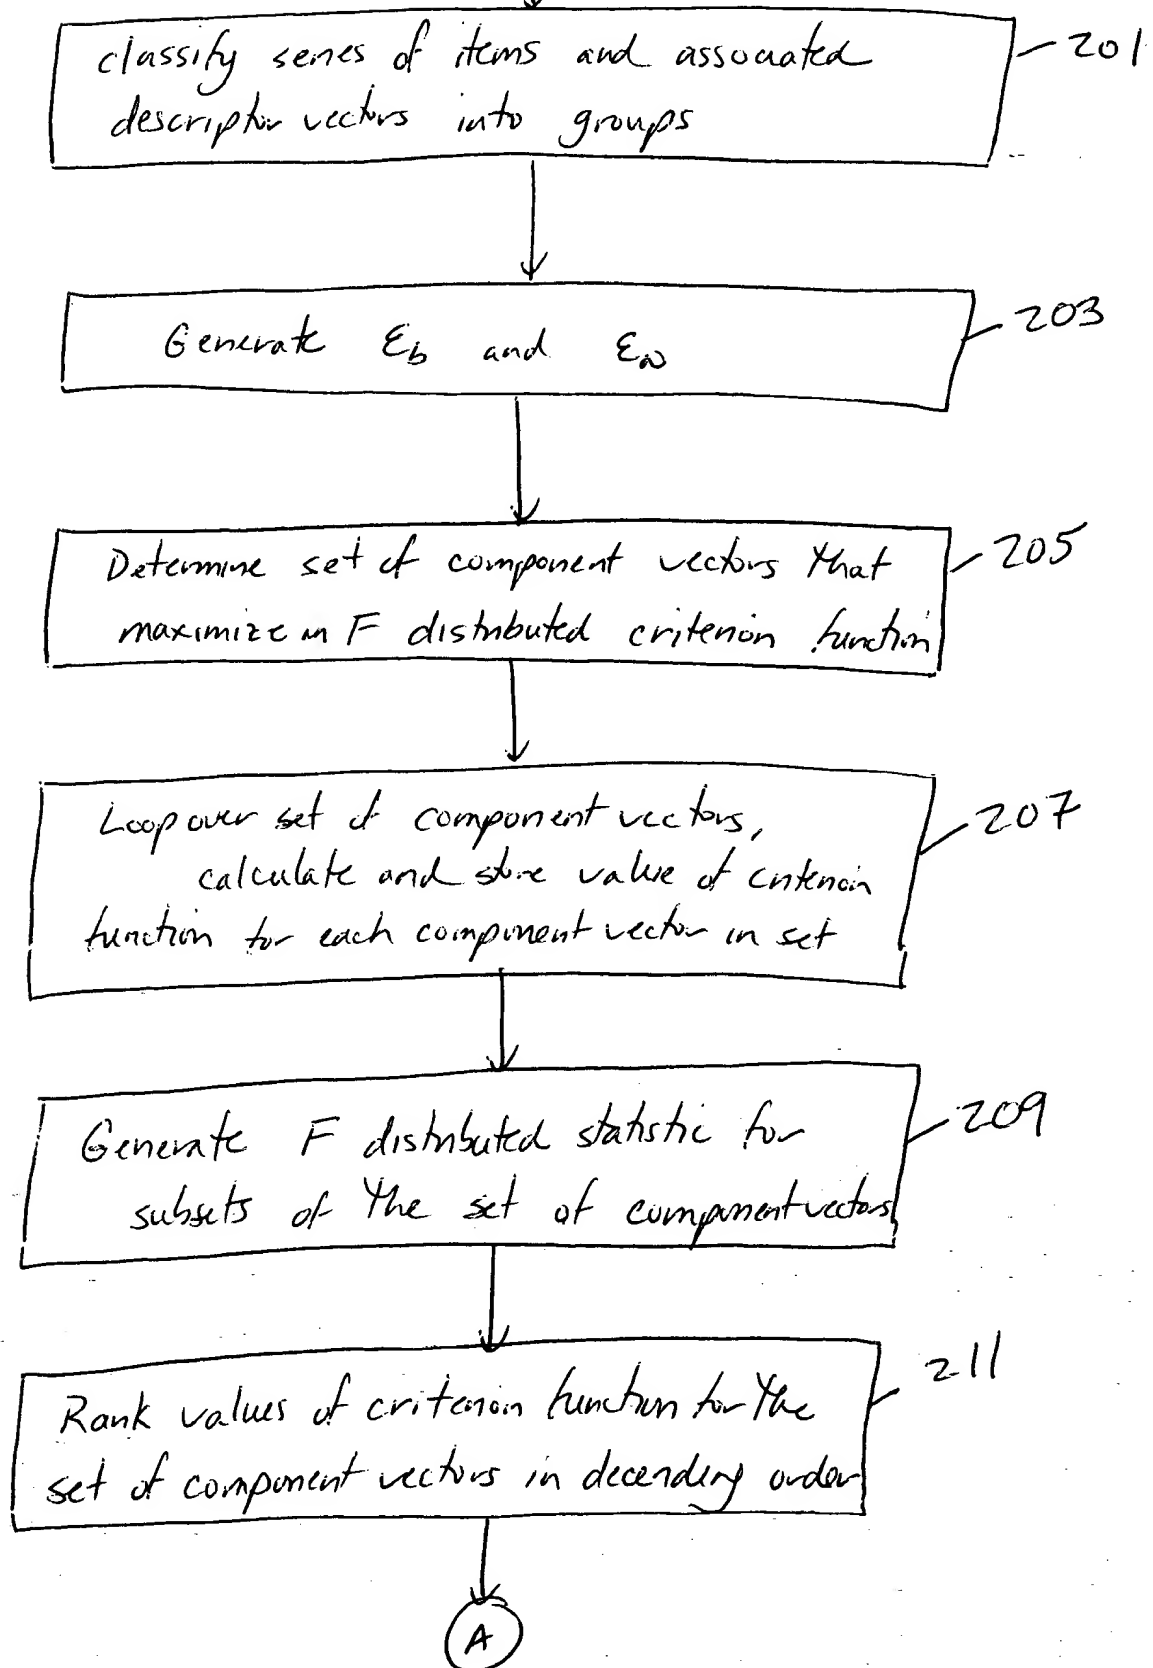 classify series of items and associated
descriptor vectors into groups
201
Generate Ɛb and Ɛw
203
Determine set of component vectors that
maximize an F distributed criterion function
205
Loop over set of component vectors,
calculate and store value of criterion
function for each component vector in set
207
Generate F distributed statistic for
subsets of the set of component vectors
209
Rank values of criterion function for the
set of component vectors in decending order
211
A